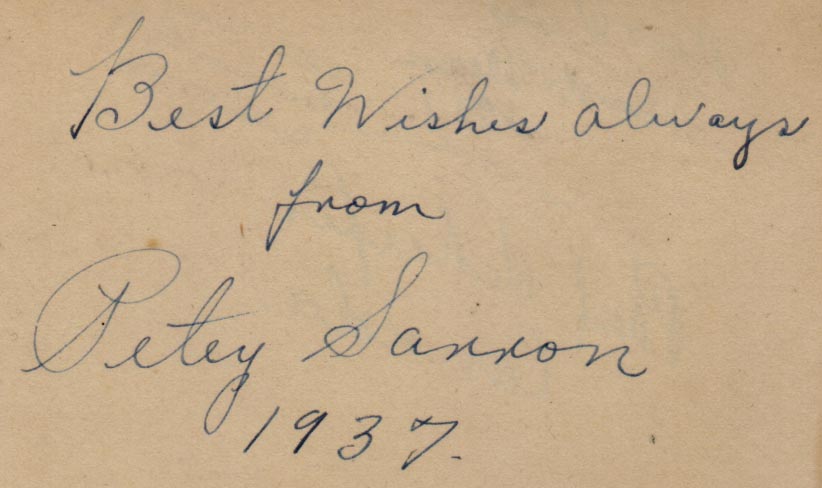 Best Wishes always
from
Petey Sarron
1937.